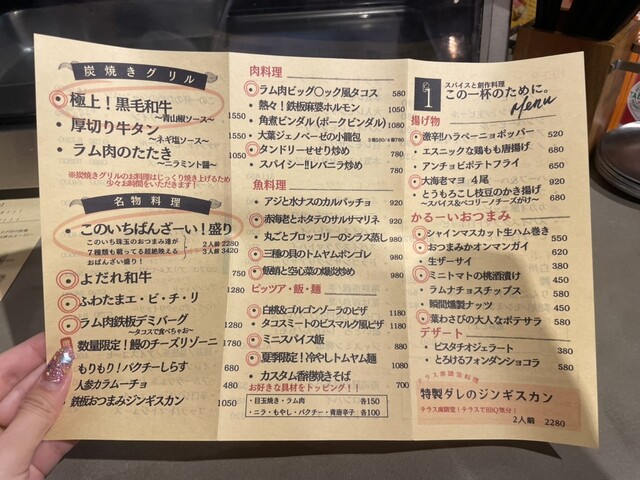 炭焼きグリル
極上！黒毛和牛
〜青山椒ソース〜 1550
厚切り牛タン
〜ネギ塩ソース〜 1050
ラム肉のたたき
〜ニラミント醤〜 1050
※炭焼きグリルのお料理はじっくり焼き上げるため
少々お時間をいただきます！
名物料理
このいちばんざーい！盛り
このいち珠玉のおつまみ達が
7種類も載ってる超絶映える
おばんざい盛り！
2人前 2280
3人前 3420
よだれ和牛 750
ふわたまエ・ビ・チ・リ 1280
ラム肉鉄板デミバーグ
〜タコスで食べちゃお〜 1280
数量限定！鰻のチーズリゾーニ 1780
もりもり！パクチーしらす 680
人参カラムーチョ 480
鉄板おつまみジンギスカン 1050
肉料理
ラム肉ビッグ〇ック風タコス 580
熱々！鉄板麻婆ホルモン 1050
角煮ビンダル（ポークビンダル） 1080
大葉ジェノベーゼの小籠包 780
タンドリーせせり炒め 780
スパイシー!!レバニラ炒め 780
魚料理
アジと水ナスのカルパッチョ 920
赤海老とホタテのサルサマリネ 920
丸ごとブロッコリーのシラス蒸し 980
三種の貝のトムヤムボンゴレ 980
飯蛸と空心菜の爆汁炒め 980
ピッツア・飯・麺
白桃＆ゴルゴンゾーラのピザ 1180
タコスミートのビスマルク風ピザ 1180
ミニスパイス飯 380
夏季限定！冷やしトムヤム麺 1080
カスタム香港焼きそば 700
お好きな具材をトッピング！！
・目玉焼き・ラム肉 各150
・ニラ・もやし・パクチー・青唐辛子 各100
スパイスと創作料理
この一杯のために。
Menu
揚げ物
激辛!!ハラペーニョポッパー 520
エスニックな鶏もも唐揚げ 680
アンチョビポテトフライ 650
大海老マヨ 4尾 920
とうもろこし枝豆のかき揚げ
〜スパイス＆ペコリーノチーズがけ〜 680
かるーいおつまみ
シャインマスカット生ハム巻き 550
おつまみかオンマンガイ 620
生ザーサイ 380
ミニトマトの桃酒漬け 450
ラムナチョスチップス 580
瞬間燻製ナッツ 450
葉わさびの大人なポテサラ 580
デザート
ピスタチオジェラート 380
とろけるフォンダンショコラ 580
テラス席限定料理
特製ダレのジンギスカン
テラス席限定！テラスでBBQ気分！
2人前 2280